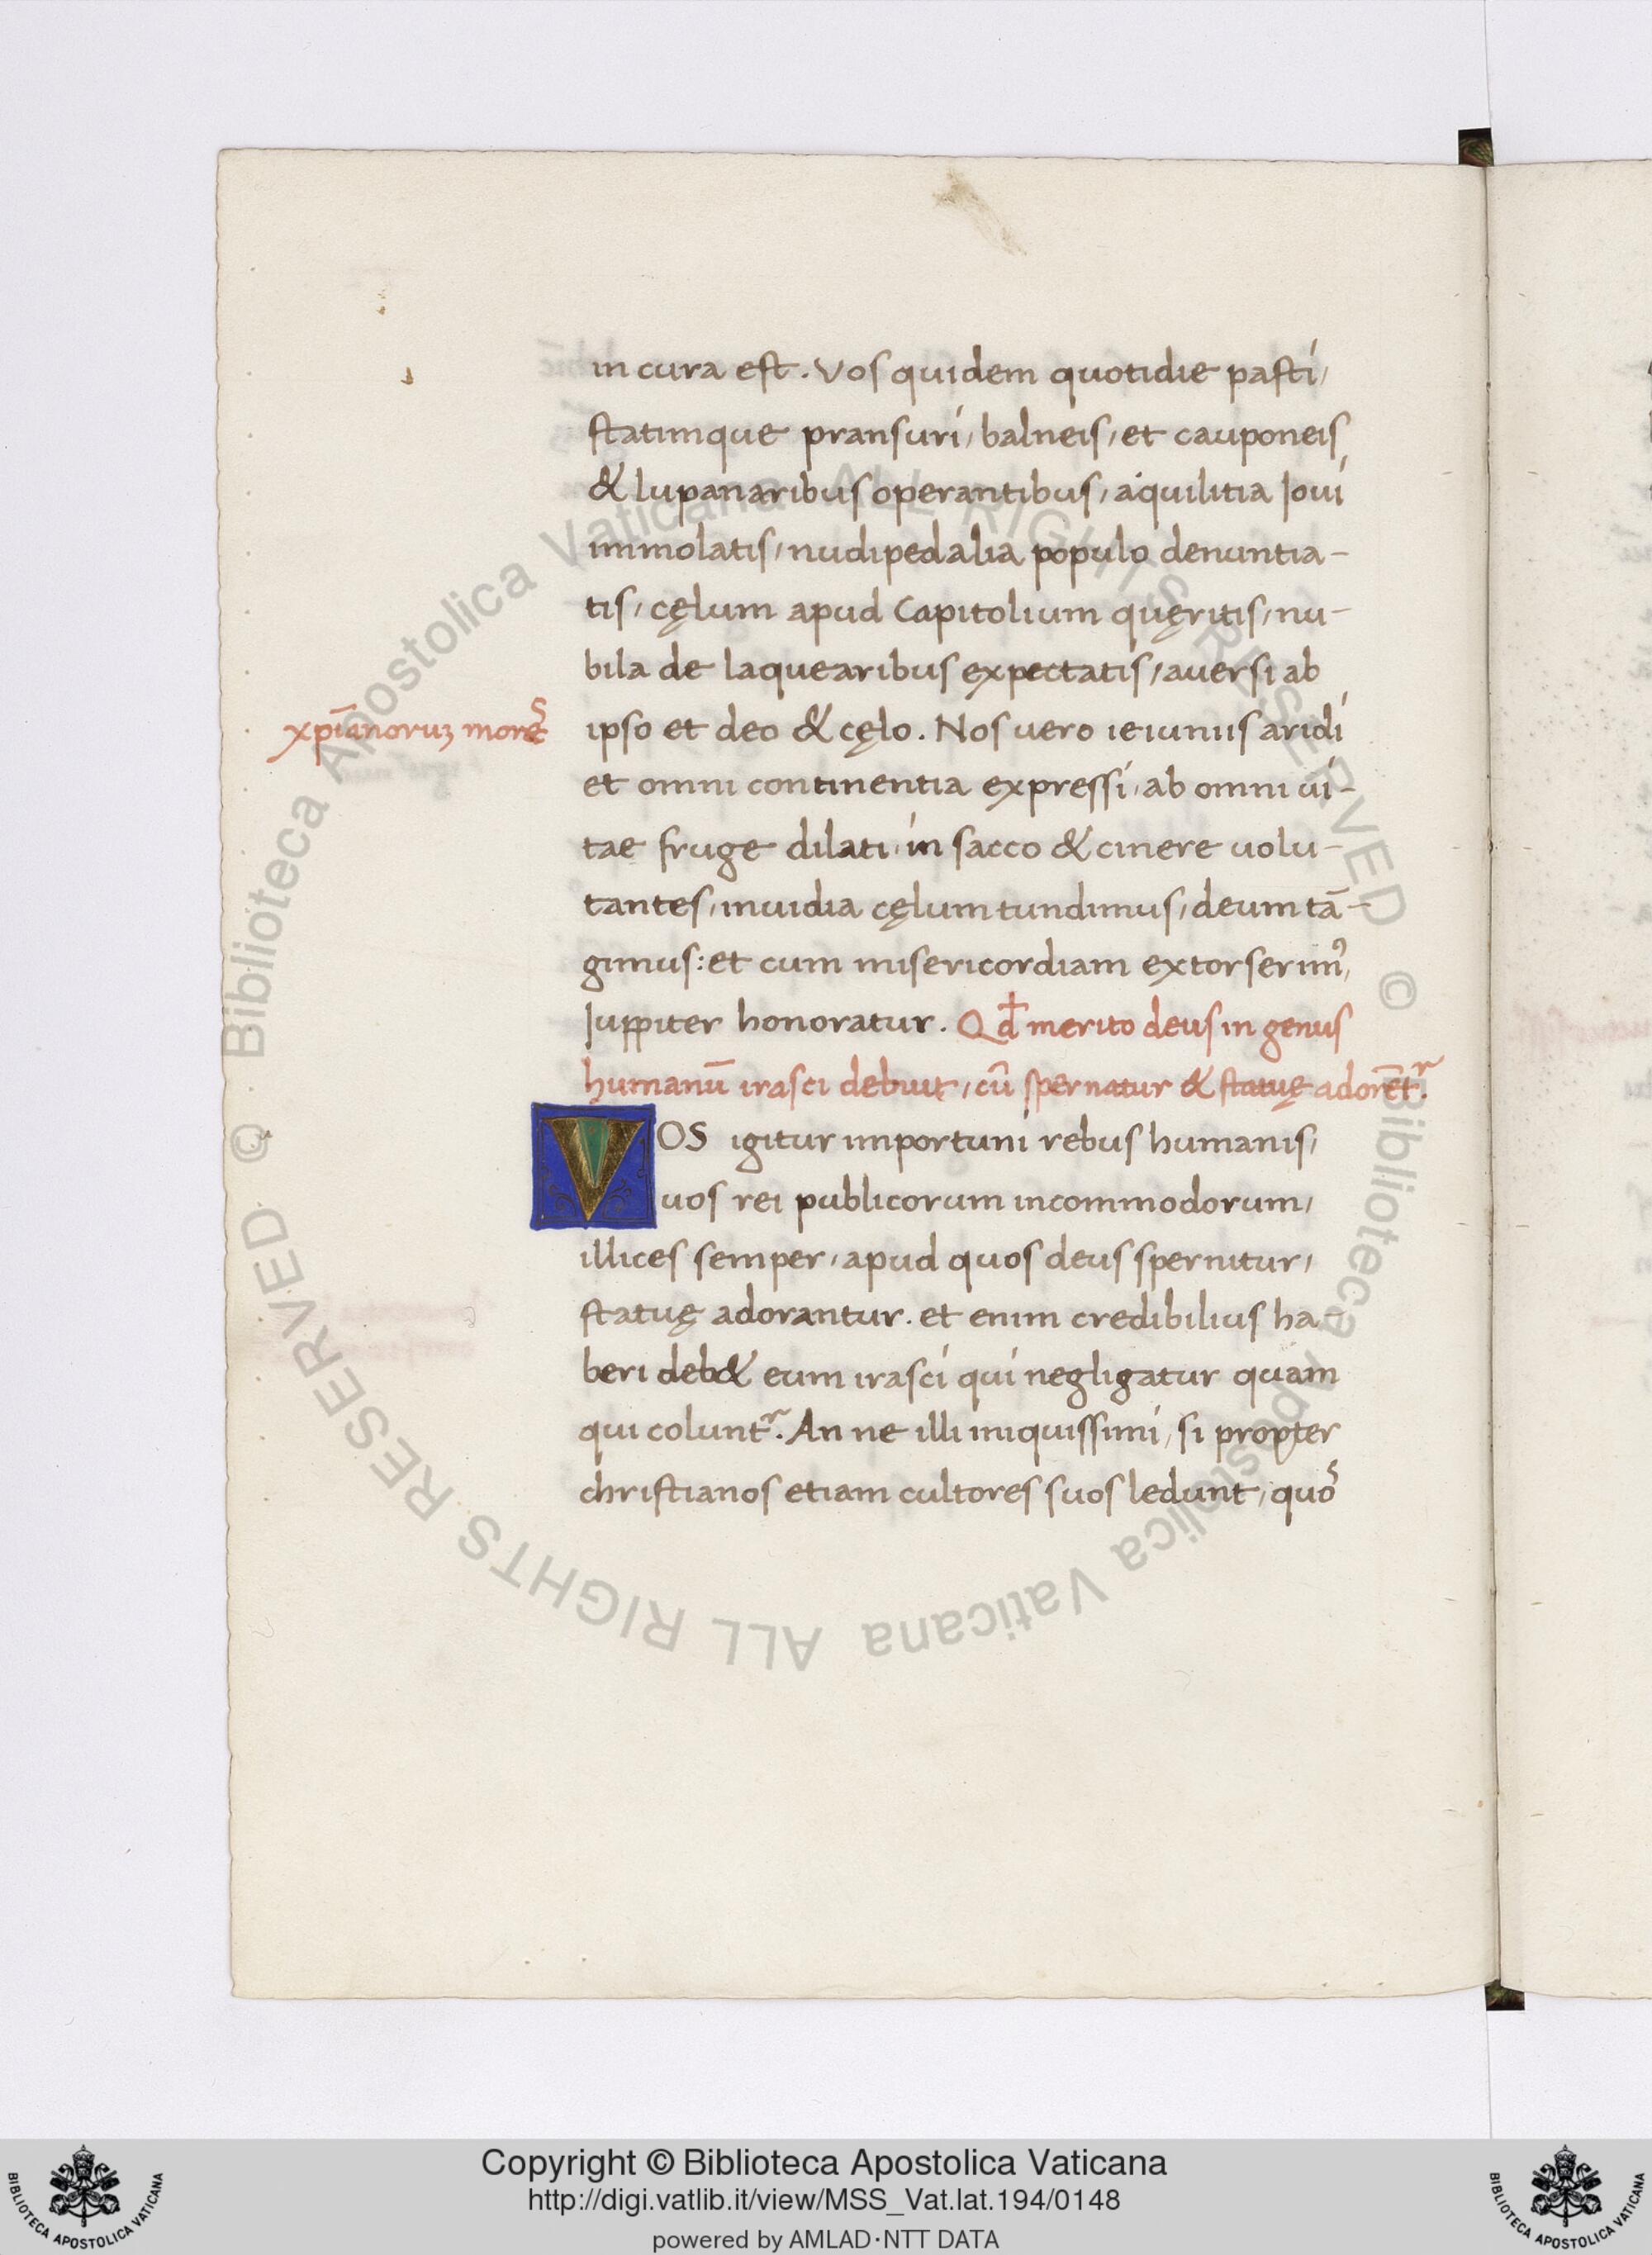 in cura est. Vos quidem quotidie pasti,
statimque pransuri, balneis, et cauponeis
& lupanaribus operantibus, aquilitia Ioui
immolatis, nudipedalia populo denuntia-
tis, cęlum apud Capitolium quęritis, nu-
bila de laquearibus expectatis, auersi ab
xp̄ianoruꝫ mores
ipso et deo & cęlo. Nos uero ieiuniis aridi
et omni continentia expressi, ab omni ui-
tae fruge dilati, in sacco & cinere uolu-
tantes, inuidia cęlum tundimus, deum tā-
gimus: et cum misericordiam extorserimꝰ,
Iuppiter honoratur. Qđ merito deus in genus
humanū irasci debuit, cū spernatur & statuę adorēt^r.
VOS igitur importuni rebus humanis,
uos rei publicorum incommodorum,
illices semper, apud quos deus spernitur,
statuę adorantur. et enim credibilius ha-
beri deb& eum irasci qui negligatur quam
qui colunt^r. An ne illi iniquissimi, si propter
christianos etiam cultores suos ledunt, quos
© Biblioteca Apostolica Vaticana ALL RIGHTS RESERVED
© Biblioteca Apostolica Vaticana ALL RIGHTS RESERVED
Copyright © Biblioteca Apostolica Vaticana
http://digi.vatlib.it/view/MSS_Vat.lat.194/0148
powered by AMLAD·NTT DATA
BIBLIOTECA APOSTOLICA VATICANA
BIBLIOTECA APOSTOLICA VATICANA